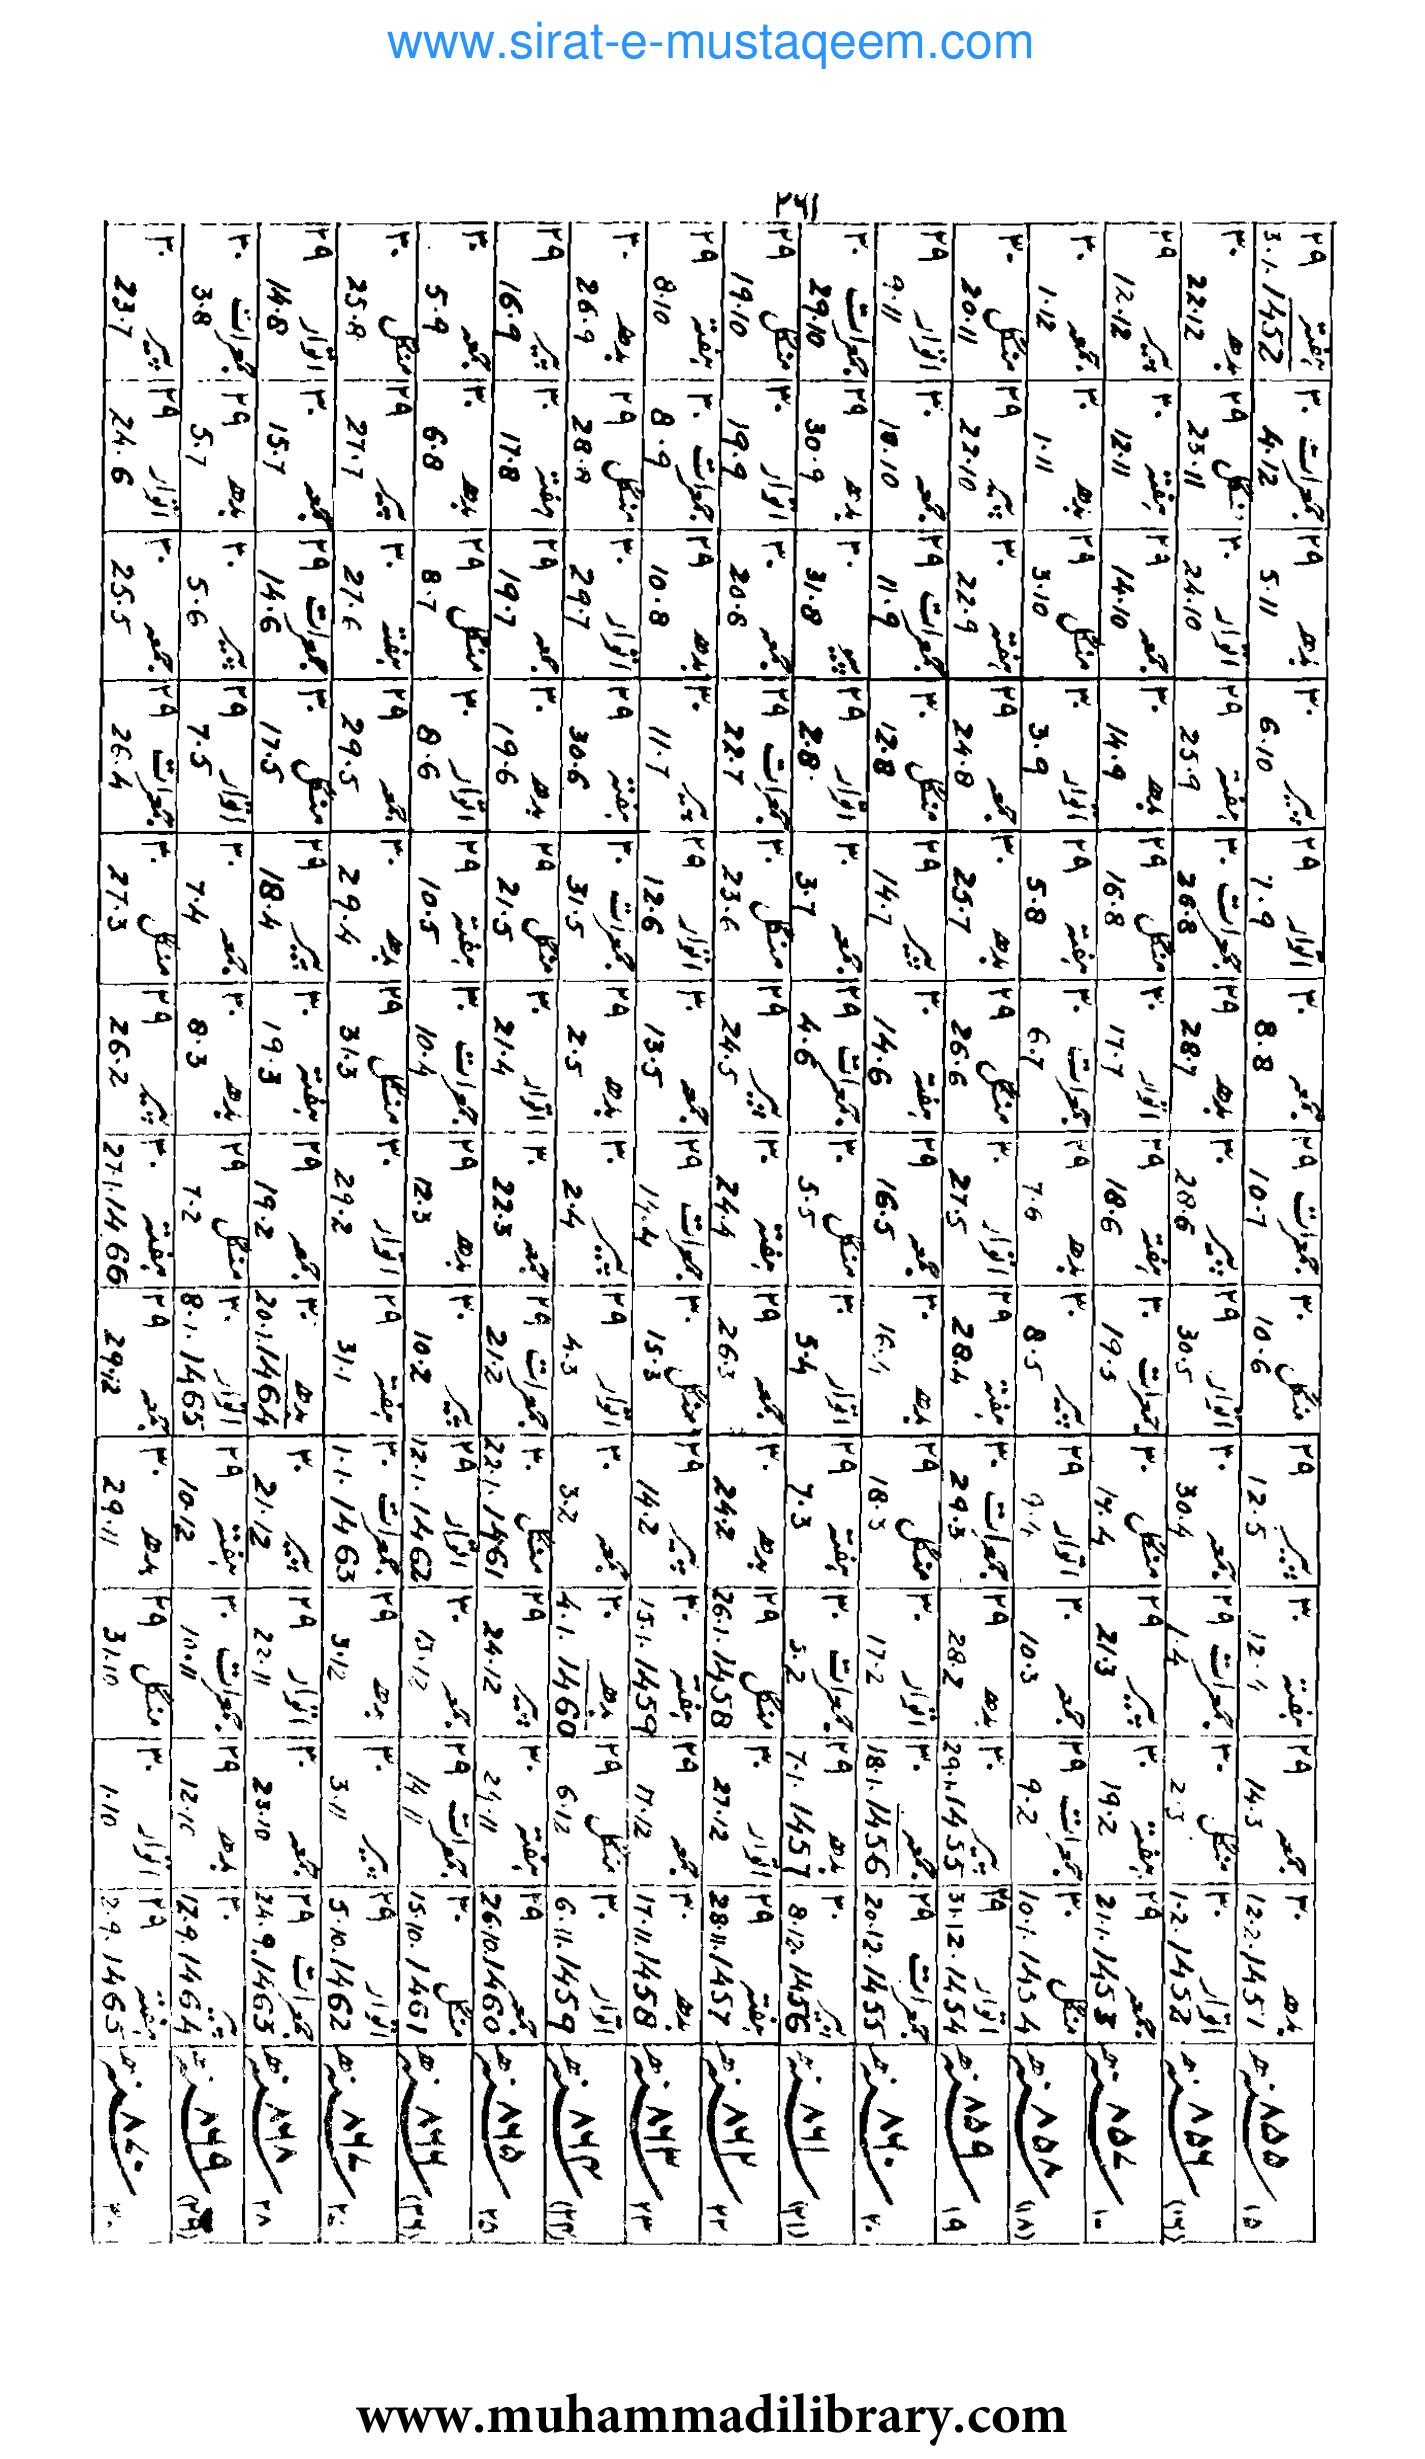 ۱۵۳
۱۵ سنہ ۸۵۵ھ بدھ ۳۰ 12.2.1451 جمعہ ۲۹ 14.3 ہفتہ ۳۰ 12.4 پیر ۲۹ 12.5 منگل ۳۰ 10.6 جمعرات ۲۹ 10.7 جمعہ ۳۰ 8.8 اتوار ۲۹ 7.9 پیر ۳۰ 6.10 بدھ ۲۹ 5.11 جمعرات ۳۰ 4.12 ہفتہ ۲۹ 3.1.1452
(۱۶) سنہ ۸۵۶ھ اتوار ۳۰ 1.2.1452 منگل ۳۰ 2.3 جمعرات ۲۹ 1.4 جمعہ ۳۰ 30.4 اتوار ۲۹ 30.5 پیر ۳۰ 28.6 بدھ ۲۹ 28.7 جمعرات ۳۰ 26.8 ہفتہ ۲۹ 25.9 اتوار ۳۰ 24.10 منگل ۲۹ 23.11 بدھ ۳۰ 22.12
سنہ ۸۵۷ھ جمعہ ۲۹ 21.1.1453 ہفتہ ۳۰ 19.2 پیر ۲۹ 21.3 منگل ۳۰ 14.4 جمعرات ۳۰ 19.5 ہفتہ ۲۹ 18.6 اتوار ۳۰ 17.7 منگل ۲۹ 16.8 بدھ ۳۰ 14.9 جمعہ ۲۹ 14.10 ہفتہ ۳۰ 12.11 پیر ۲۹ 12.12
(۱۸) سنہ ۸۵۸ھ منگل ۳۰ 10.1.1454 جمعرات ۲۹ 9.2 جمعہ ۳۰ 10.3 اتوار ۲۹ 9.4 پیر ۳۰ 8.5 بدھ ۲۹ 7.6 جمعرات ۳۰ 6.7 ہفتہ ۲۹ 5.8 اتوار ۳۰ 3.9 منگل ۲۹ 3.10 بدھ ۳۰ 1.11 جمعہ ۳۰ 1.12
۱۹ سنہ ۸۵۹ھ اتوار ۲۹ 31.12.1454 پیر ۳۰ 29.1.1455 بدھ ۲۹ 28.2 جمعرات ۳۰ 29.3 ہفتہ ۲۹ 28.4 اتوار ۳۰ 27.5 منگل ۲۹ 26.6 بدھ ۳۰ 25.7 جمعہ ۲۹ 24.8 ہفتہ ۳۰ 22.9 پیر ۲۹ 22.10 منگل ۳۰ 20.11
۲۰ سنہ ۸۶۰ھ جمعرات ۲۹ 20.12.1455 جمعہ ۳۰ 18.1.1456 اتوار ۳۰ 17.2 منگل ۲۹ 18.3 بدھ ۳۰ 16.4 جمعہ ۳۰ 16.5 ہفتہ ۳۰ 14.6 پیر ۲۹ 14.7 منگل ۳۰ 12.8 جمعرات ۲۹ 11.9 جمعہ ۳۰ 10.10 اتوار ۲۹ 9.11
(۲۱) سنہ ۸۶۱ھ پیر ۳۰ 8.12.1456 بدھ ۲۹ 7.1.1457 جمعرات ۳۰ 5.2 ہفتہ ۲۹ 7.3 اتوار ۳۰ 5.4 منگل ۳۰ 5.5 جمعرات ۲۹ 4.6 جمعہ ۳۰ 3.7 اتوار ۲۹ 2.8 پیر ۳۰ 31.8 بدھ ۲۹ 30.9 جمعرات ۳۰ 29.10
۲۲ سنہ ۸۶۲ھ ہفتہ ۲۹ 28.11.1457 اتوار ۳۰ 27.12 منگل ۲۹ 26.1.1458 بدھ ۳۰ 24.2 جمعہ ۲۹ 26.3 ہفتہ ۳۰ 24.4 پیر ۲۹ 24.5 منگل ۳۰ 23.6 جمعرات ۲۹ 22.7 جمعہ ۳۰ 20.8 اتوار ۳۰ 19.9 منگل ۲۹ 19.10
۲۳ سنہ ۸۶۳ھ بدھ ۳۰ 17.11.1458 جمعہ ۲۹ 17.12 ہفتہ ۳۰ 15.1.1459 پیر ۲۹ 14.2 منگل ۳۰ 15.3 جمعرات ۲۹ 14.4 جمعہ ۳۰ 13.5 اتوار ۲۹ 12.6 پیر ۳۰ 11.7 بدھ ۲۹ 10.8 جمعرات ۳۰ 8.9 ہفتہ ۲۹ 8.10
(۲۴) سنہ ۸۶۴ھ اتوار ۳۰ 6.11.1459 منگل ۲۹ 6.12 بدھ ۳۰ 4.1.1460 جمعہ ۳۰ 3.2 اتوار ۲۹ 4.3 پیر ۳۰ 2.4 بدھ ۲۹ 2.5 جمعرات ۳۰ 31.5 ہفتہ ۲۹ 30.6 اتوار ۳۰ 29.7 منگل ۲۹ 28.8 بدھ ۳۰ 26.9
۲۵ سنہ ۸۶۵ھ جمعہ ۲۹ 26.10.1460 ہفتہ ۳۰ 24.11 پیر ۲۹ 24.12 منگل ۳۰ 22.1.1461 جمعرات ۲۹ 21.2 جمعہ ۳۰ 22.3 اتوار ۳۰ 21.4 منگل ۲۹ 21.5 بدھ ۳۰ 19.6 جمعہ ۲۹ 19.7 ہفتہ ۳۰ 17.8 پیر ۲۹ 16.9
(۲۶) سنہ ۸۶۶ھ منگل ۳۰ 15.10.1461 جمعرات ۲۹ 14.11 جمعہ ۳۰ 13.12 اتوار ۲۹ 12.1.1462 پیر ۳۰ 10.2 بدھ ۲۹ 12.3 جمعرات ۳۰ 10.4 ہفتہ ۲۹ 10.5 اتوار ۳۰ 8.6 منگل ۲۹ 8.7 بدھ ۳۰ 6.8 جمعہ ۳۰ 5.9
سنہ ۸۶۷ھ اتوار ۲۹ 5.10.1462 پیر ۳۰ 3.11 بدھ ۲۹ 3.12 جمعرات ۳۰ 1.1.1463 ہفتہ ۲۹ 31.1 اتوار ۳۰ 29.2 منگل ۲۹ 31.3 بدھ ۳۰ 29.4 جمعہ ۲۹ 29.5 ہفتہ ۳۰ 27.6 پیر ۲۹ 27.7 منگل ۳۰ 25.8
۲۸ سنہ ۸۶۸ھ جمعرات ۲۹ 24.9.1463 جمعہ ۳۰ 23.10 اتوار ۲۹ 22.11 پیر ۳۰ 21.12 بدھ ۳۰ 20.1.1464 جمعہ ۲۹ 19.2 ہفتہ ۳۰ 19.3 پیر ۲۹ 18.4 منگل ۳۰ 17.5 جمعرات ۲۹ 14.6 جمعہ ۳۰ 15.7 اتوار ۲۹ 14.8
(۲۹) سنہ ۸۶۹ھ پیر ۳۰ 12.9.1464 بدھ ۲۹ 12.10 جمعرات ۳۰ 10.11 ہفتہ ۲۹ 10.12 اتوار ۳۰ 8.1.1465 منگل ۲۹ 7.2 بدھ ۳۰ 8.3 جمعہ ۳۰ 7.4 اتوار ۲۹ 7.5 پیر ۳۰ 5.6 بدھ ۲۹ 5.7 جمعرات ۳۰ 3.8
۳۰ سنہ ۸۷۰ھ ہفتہ ۲۹ 2.9.1465 اتوار ۳۰ 1.10 منگل ۲۹ 31.10 بدھ ۳۰ 29.11 جمعہ ۲۹ 29.12 ہفتہ ۳۰ 27.1.1466 پیر ۲۹ 26.2 منگل ۳۰ 27.3 جمعرات ۲۹ 26.4 جمعہ ۳۰ 25.5 اتوار ۲۹ 24.6 پیر ۳۰ 23.7
www.sirat-e-mustaqeem.com
www.muhammadilibrary.com